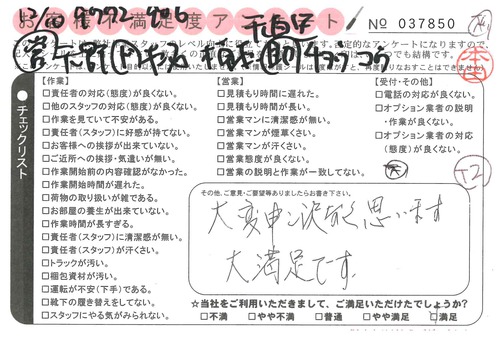 お客様不満足度アンケート
No 037850
チェックリスト
【作業】
□責任者の対応(態度)が良くない。
□他のスタッフの対応(態度)が良くない。
□作業を見ていて不安がある。
□責任者(スタッフ)に好感が持てない。
□お客様への挨拶が出来ていない。
□ご近所への挨拶・気遣いが無い。
□作業開始前の内容確認がなかった。
□作業開始時間が遅れた。
□荷物の取り扱いが雑である。
□お部屋の養生が出来ていない。
□作業時間が長すぎる。
□責任者(スタッフ)に清潔感が無い。
□責任者(スタッフ)が汗くさい。
□トラックが汚い。
□梱包資材が汚い。
□運転が不安(下手)である。
□靴下の履き替えをしてない。
□スタッフにやる気がみられない。
【営業】
□見積もり時間に遅れた。
□見積もり時間が長い。
□営業マンに清潔感が無い。
□営業マンが煙草くさい。
□営業マンが汗くさい。
□営業態度が良くない。
□営業の説明と作業が一致してない。
【受付・その他】
□電話の対応が良くない。
□オプション業者の説明
・作業が良くない。
□オプション業者の対応
(態度)が良くない。
その他、ご意見・ご要望等ありましたらお書き下さい。
大変申し訳なく思います
大満足です
☆当社をご利用いただきまして、ご満足いただけたでしょうか?
□不満 □やや不満 □普通 □やや満足 □満足